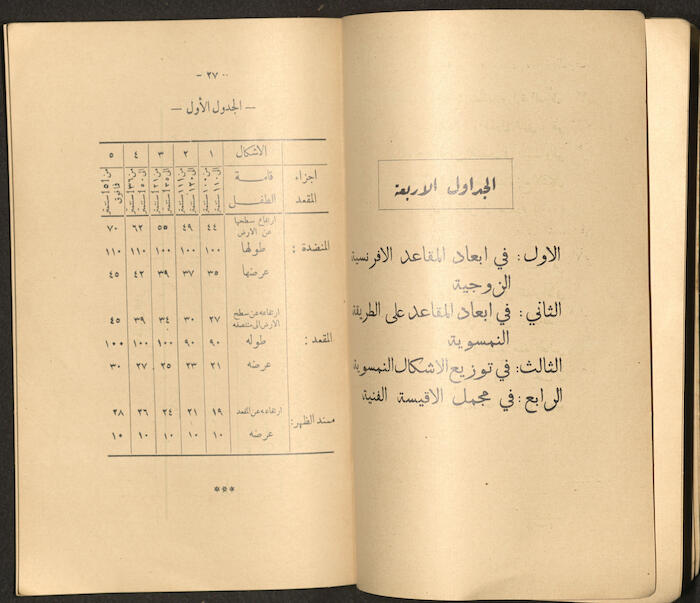 الجداول الاربعة
الاول: في ابعاد المقاعد الافرنسية
الزوجية
الثاني: في ابعاد المقاعد على الطريقة
النمسوية
الثالث: في توزيع الاشكال النمسوية
الرابع: في مجمل الاقيسة الفنية
٢٧ -
— الجدول الأول —
الاشكال ١ ٢ ٣ ٤ ٥
اجزاء قامة
المقعد الطفل
ارتفاع سطحها
عن الارض ٤٤ ٤٩ ٥٥ ٦٢ ٧٠
المنضدة : طولها ١٠٠ ١٠٠ ١٠٠ ١١٠ ١١٠
عرضها ٣٥ ٣٧ ٣٩ ٤٢ ٤٥
ارتفاعه عن سطح
الارض الى منتصفه ٢٧ ٣٠ ٣٤ ٣٩ ٤٥
المقعد : طوله ٩٠ ٩٠ ١٠٠ ١٠٠ ١٠٠
عرضه ٢١ ٢٣ ٢٥ ٢٧ ٣٠
مسند الظهر: ارتفاعه عن المقعد ١٩ ٢١ ٢٤ ٢٦ ٢٨
عرضه ١٠ ١٠ ١٠ ١٠ ١٠
***